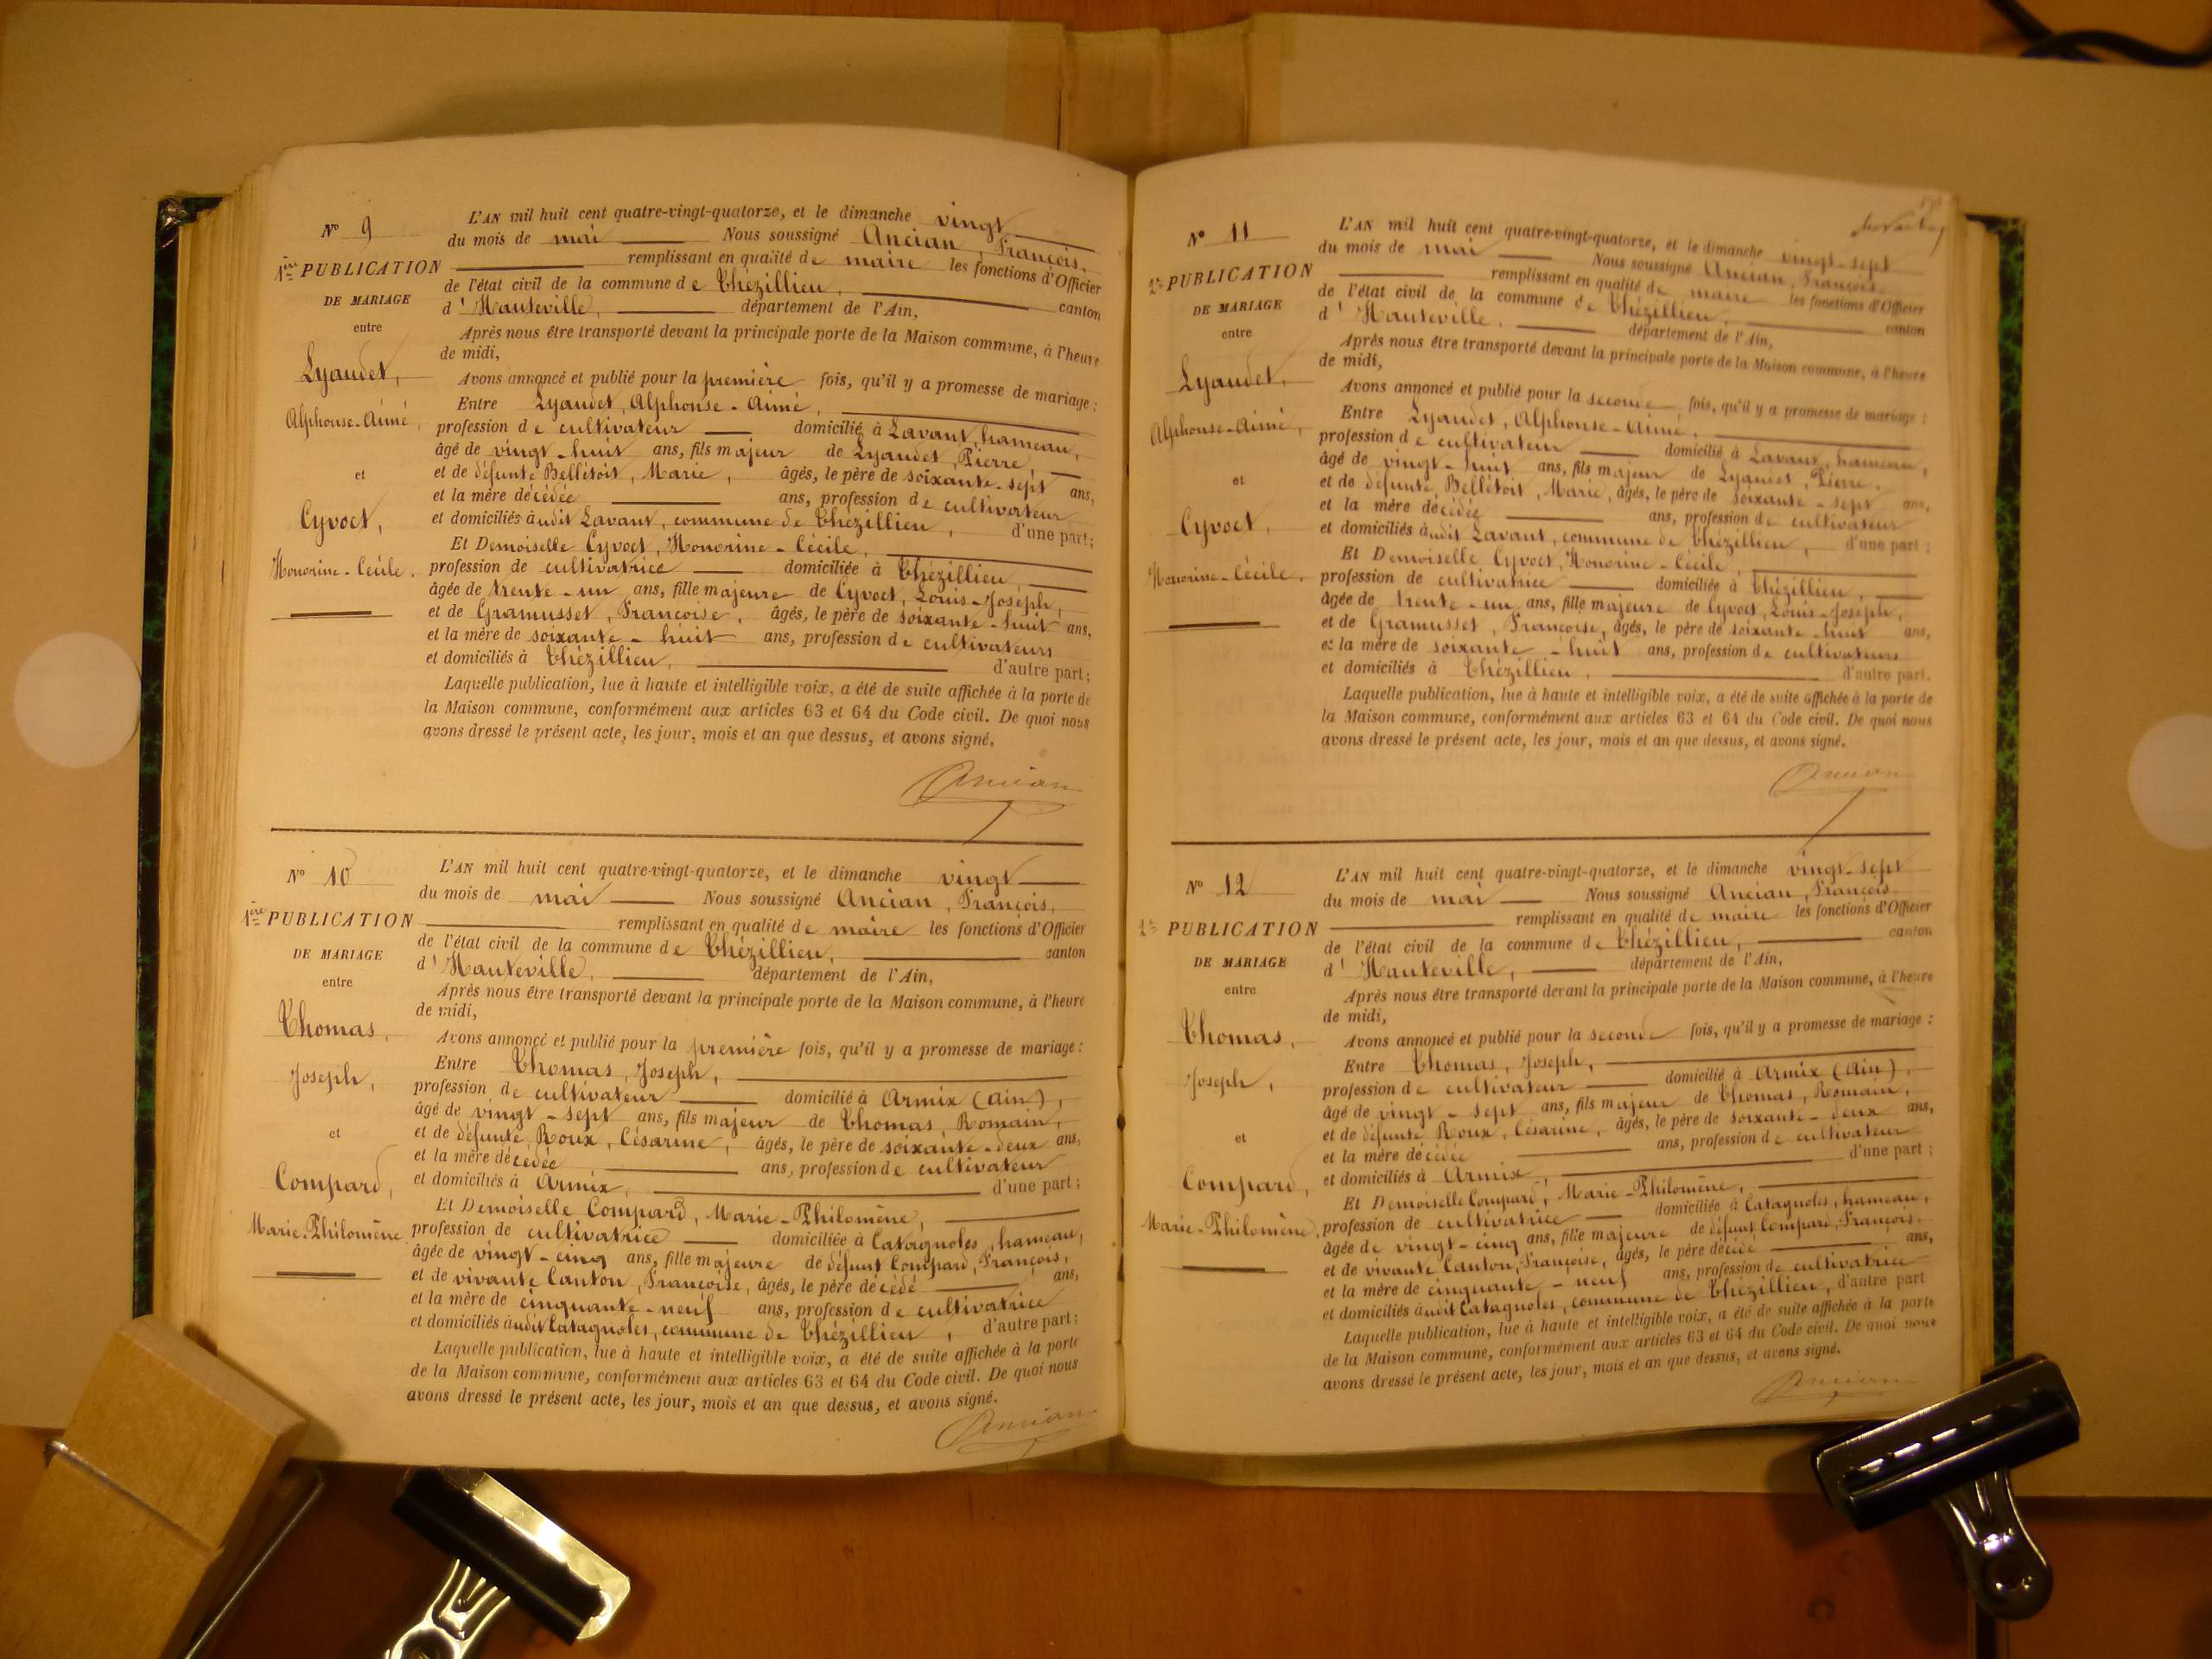 N° 9
1ère PUBLICATION
DE MARIAGE
entre
Lyaudet,
Alphonse-Aimé,
et
Cyvoct,
Honorine-Cécile.
L'AN mil huit cent quatre-vingt-quatorze, et le dimanche vingt
du mois de mai Nous soussigné Ancian, François,
remplissant en qualité de maire les fonctions d'Officier
de l'état civil de la commune de Thézillieu, canton
d'Hauteville, département de l'Ain,
Après nous être transporté devant la principale porte de la Maison commune, à l'heure
de midi,
Avons annoncé et publié pour la première fois, qu'il y a promesse de mariage :
Entre Lyaudet, Alphonse-Aimé,
profession de cultivateur domicilié à Lavant, hameau,
âgé de vingt-huit ans, fils majeur de Lyaudet, Pierre,
et de défunte Bellétoit, Marie, âgés, le père de soixante-sept ans,
et la mère décédée ans, profession de cultivateur
et domiciliés àudit Lavant, commune de Thézillieu, d'une part ;
Et Demoiselle Cyvoct, Honorine-Cécile,
profession de cultivatrice domiciliée à Thézillieu,
âgée de trente-un ans, fille majeure de Cyvoct, Louis-Joseph,
et de Gramusset, Françoise, âgés, le père de soixante-huit ans,
et la mère de soixante-huit ans, profession de cultivateurs
et domiciliés à Thézillieu, d'autre part ;
Laquelle publication, lue à haute et intelligible voix, a été de suite affichée à la porte de
la Maison commune, conformément aux articles 63 et 64 du Code civil. De quoi nous
avons dressé le présent acte, les jour, mois et an que dessus, et avons signé.
Ancian
N° 10
1ère PUBLICATION
DE MARIAGE
entre
Thomas,
Joseph,
et
Compard,
Marie-Philomène
L'AN mil huit cent quatre-vingt-quatorze, et le dimanche vingt
du mois de mai Nous soussigné Ancian, François,
remplissant en qualité de maire les fonctions d'Officier
de l'état civil de la commune de Thézillieu, canton
d'Hauteville, département de l'Ain,
Après nous être transporté devant la principale porte de la Maison commune, à l'heure
de midi,
Avons annoncé et publié pour la première fois, qu'il y a promesse de mariage :
Entre Thomas, Joseph,
profession de cultivateur domicilié à Armix (Ain),
âgé de vingt-sept ans, fils majeur de Thomas, Romain,
et de défunte Roux, Césarine, âgés, le père de soixante-deux ans,
et la mère décédée ans, profession de cultivateur
et domiciliés à Armix, d'une part ;
Et Demoiselle Compard, Marie-Philomène,
profession de cultivatrice domiciliée à Catagnoles, hameau,
âgée de vingt-cinq ans, fille majeure de défunt Compard, François,
et de vivante Canton, Françoise, âgés, le père décédé ans,
et la mère de cinquante-neuf ans, profession de cultivatrice
et domiciliés àudit Catagnoles, commune de Thézillieu, d'autre part ;
Laquelle publication, lue à haute et intelligible voix, a été de suite affichée à la porte
de la Maison commune, conformément aux articles 63 et 64 du Code civil. De quoi nous
avons dressé le présent acte, les jour, mois et an que dessus, et avons signé.
Ancian
N° 11
2e PUBLICATION
DE MARIAGE
entre
Lyaudet,
Alphonse-Aimé,
et
Cyvoct,
Honorine-Cécile.
L'AN mil huit cent quatre-vingt-quatorze, et le dimanche vingt-sept
du mois de mai Nous soussigné Ancian, François,
remplissant en qualité de maire les fonctions d'Officier
de l'état civil de la commune de Thézillieu, canton
d'Hauteville, département de l'Ain,
Après nous être transporté devant la principale porte de la Maison commune, à l'heure
de midi,
Avons annoncé et publié pour la seconde fois, qu'il y a promesse de mariage :
Entre Lyaudet, Alphonse-Aimé,
profession de cultivateur domicilié à Lavant, hameau,
âgé de vingt-huit ans, fils majeur de Lyaudet, Pierre,
et de défunte Bellétoit, Marie, âgés, le père de soixante-sept ans,
et la mère décédée ans, profession de cultivateur
et domiciliés àudit Lavant, commune de Thézillieu, d'une part ;
Et Demoiselle Cyvoct, Honorine-Cécile,
profession de cultivatrice domiciliée à Thézillieu,
âgée de trente-un ans, fille majeure de Cyvoct, Louis-Joseph,
et de Gramusset, Françoise, âgés, le père de soixante-huit ans,
et la mère de soixante-huit ans, profession de cultivateurs
et domiciliés à Thézillieu, d'autre part.
Laquelle publication, lue à haute et intelligible voix, a été de suite affichée à la porte de
la Maison commune, conformément aux articles 63 et 64 du Code civil. De quoi nous
avons dressé le présent acte, les jour, mois et an que dessus, et avons signé.
Ancian
N° 12
2e PUBLICATION
DE MARIAGE
entre
Thomas,
Joseph,
et
Compard,
Marie-Philomène.
L'AN mil huit cent quatre-vingt-quatorze, et le dimanche vingt-sept
du mois de mai Nous soussigné Ancian, François
remplissant en qualité de maire les fonctions d'Officier
de l'état civil de la commune de Thézillieu, canton
d'Hauteville, département de l'Ain,
Après nous être transporté devant la principale porte de la Maison commune, à l'heure
de midi,
Avons annoncé et publié pour la seconde fois, qu'il y a promesse de mariage :
Entre Thomas, Joseph,
profession de cultivateur domicilié à Armix (Ain),
âgé de vingt-sept ans, fils majeur de Thomas, Romain,
et de défunte Roux, Césarine, âgés, le père de soixante-deux ans,
et la mère décédée ans, profession de cultivateur
et domiciliés à Armix, d'une part ;
Et Demoiselle Compard, Marie-Philomène,
profession de cultivatrice domiciliée à Catagnoles, hameau,
âgée de vingt-cinq ans, fille majeure de défunt Compard, François,
et de vivante Canton, Françoise, âgés, le père décédé ans,
et la mère de cinquante-neuf ans, profession de cultivatrice
et domiciliés àudit Catagnoles, commune de Thézillieu, d'autre part
Laquelle publication, lue à haute et intelligible voix, a été de suite affichée à la porte
de la Maison commune, conformément aux articles 63 et 64 du Code civil. De quoi nous
avons dressé le présent acte, les jour, mois et an que dessus, et avons signé.
Ancian